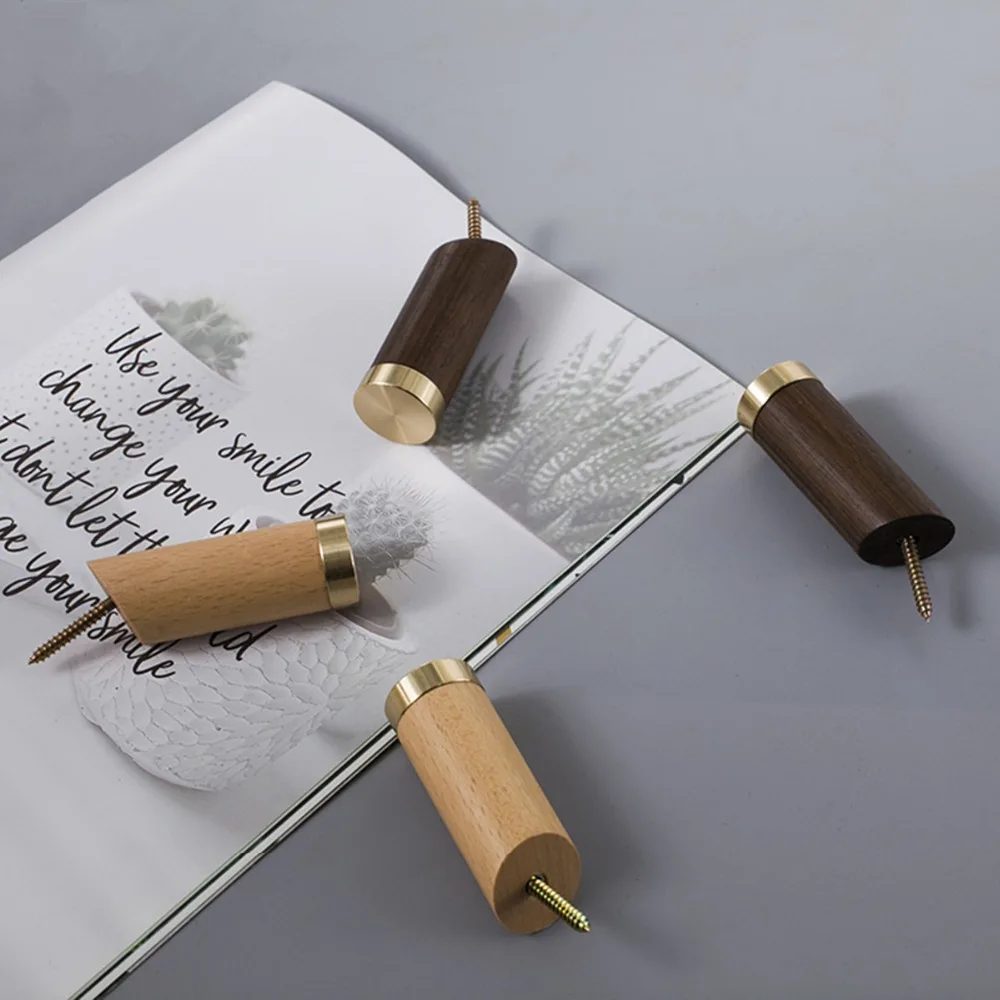 Use your smile to
change your w
t don't let th
ge your smile
ld